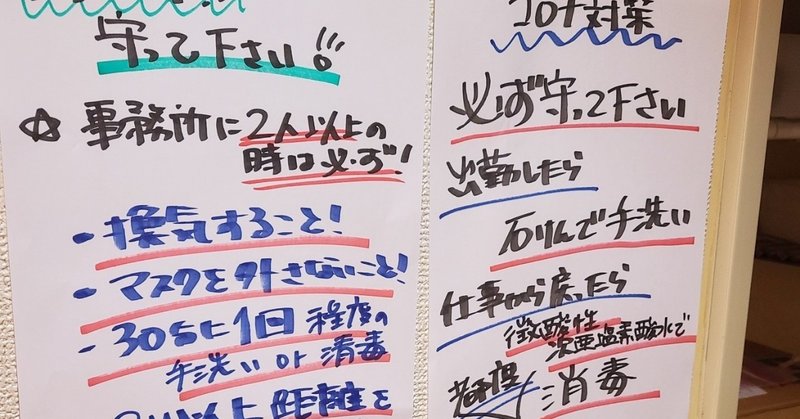 守って下さい!!
☆ 事務所に2人以上の
時は必ず!
・換気すること!
・マスクを外さないこと!
・30分に1回 程度の
手洗い or 消毒
以上距離を
コロナ対策
必ず守って下さい
出勤したら
石けんで手洗い
仕事から戻ったら
微酸性
次亜塩素酸水で
消毒